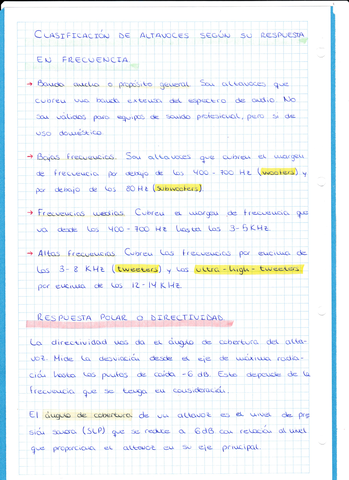 CLASIFICACIÓN DE ALTAVOCES SEGÚN SU RESPUESTA
EN FRECUENCIA
→ Banda ancha o propósito general. Son altavoces que
cubren una banda extensa del espectro de audio. No
son válidos para equipos de sonido profesional, pero si de
uso doméstico.
→ Bajas frecuencias. Son altavoces que cubren el margen
de frecuencia por debajo de los 400-700 Hz (woofers) y
por debajo de los 80 Hz (subwoofers)
→ Frecuencias medias. Cubren el margen de frecuencia que
va desde los 400-700 Hz hasta los 3-5 KHz
→ Altas frecuencias. Cubren las frecuencias por encima de
los 3-8 KHz (tweeters) y los ultra-high-tweeters
por encima de los 12-14 KHz.
RESPUESTA POLAR O DIRECTIVIDAD
La directividad nos da el ángulo de cobertura del alta-
voz. Mide la desviación desde el eje de máxima radia-
ción hasta los puntos de caída -6 dB. Esto depende de la
frecuencia que se tenga en consideración.
El ángulo de cobertura de un altavoz es el nivel de pre
sión sonora (SLP) que se reduce a 6dB con relación al nivel
que proporciona el altavoz en su eje principal.